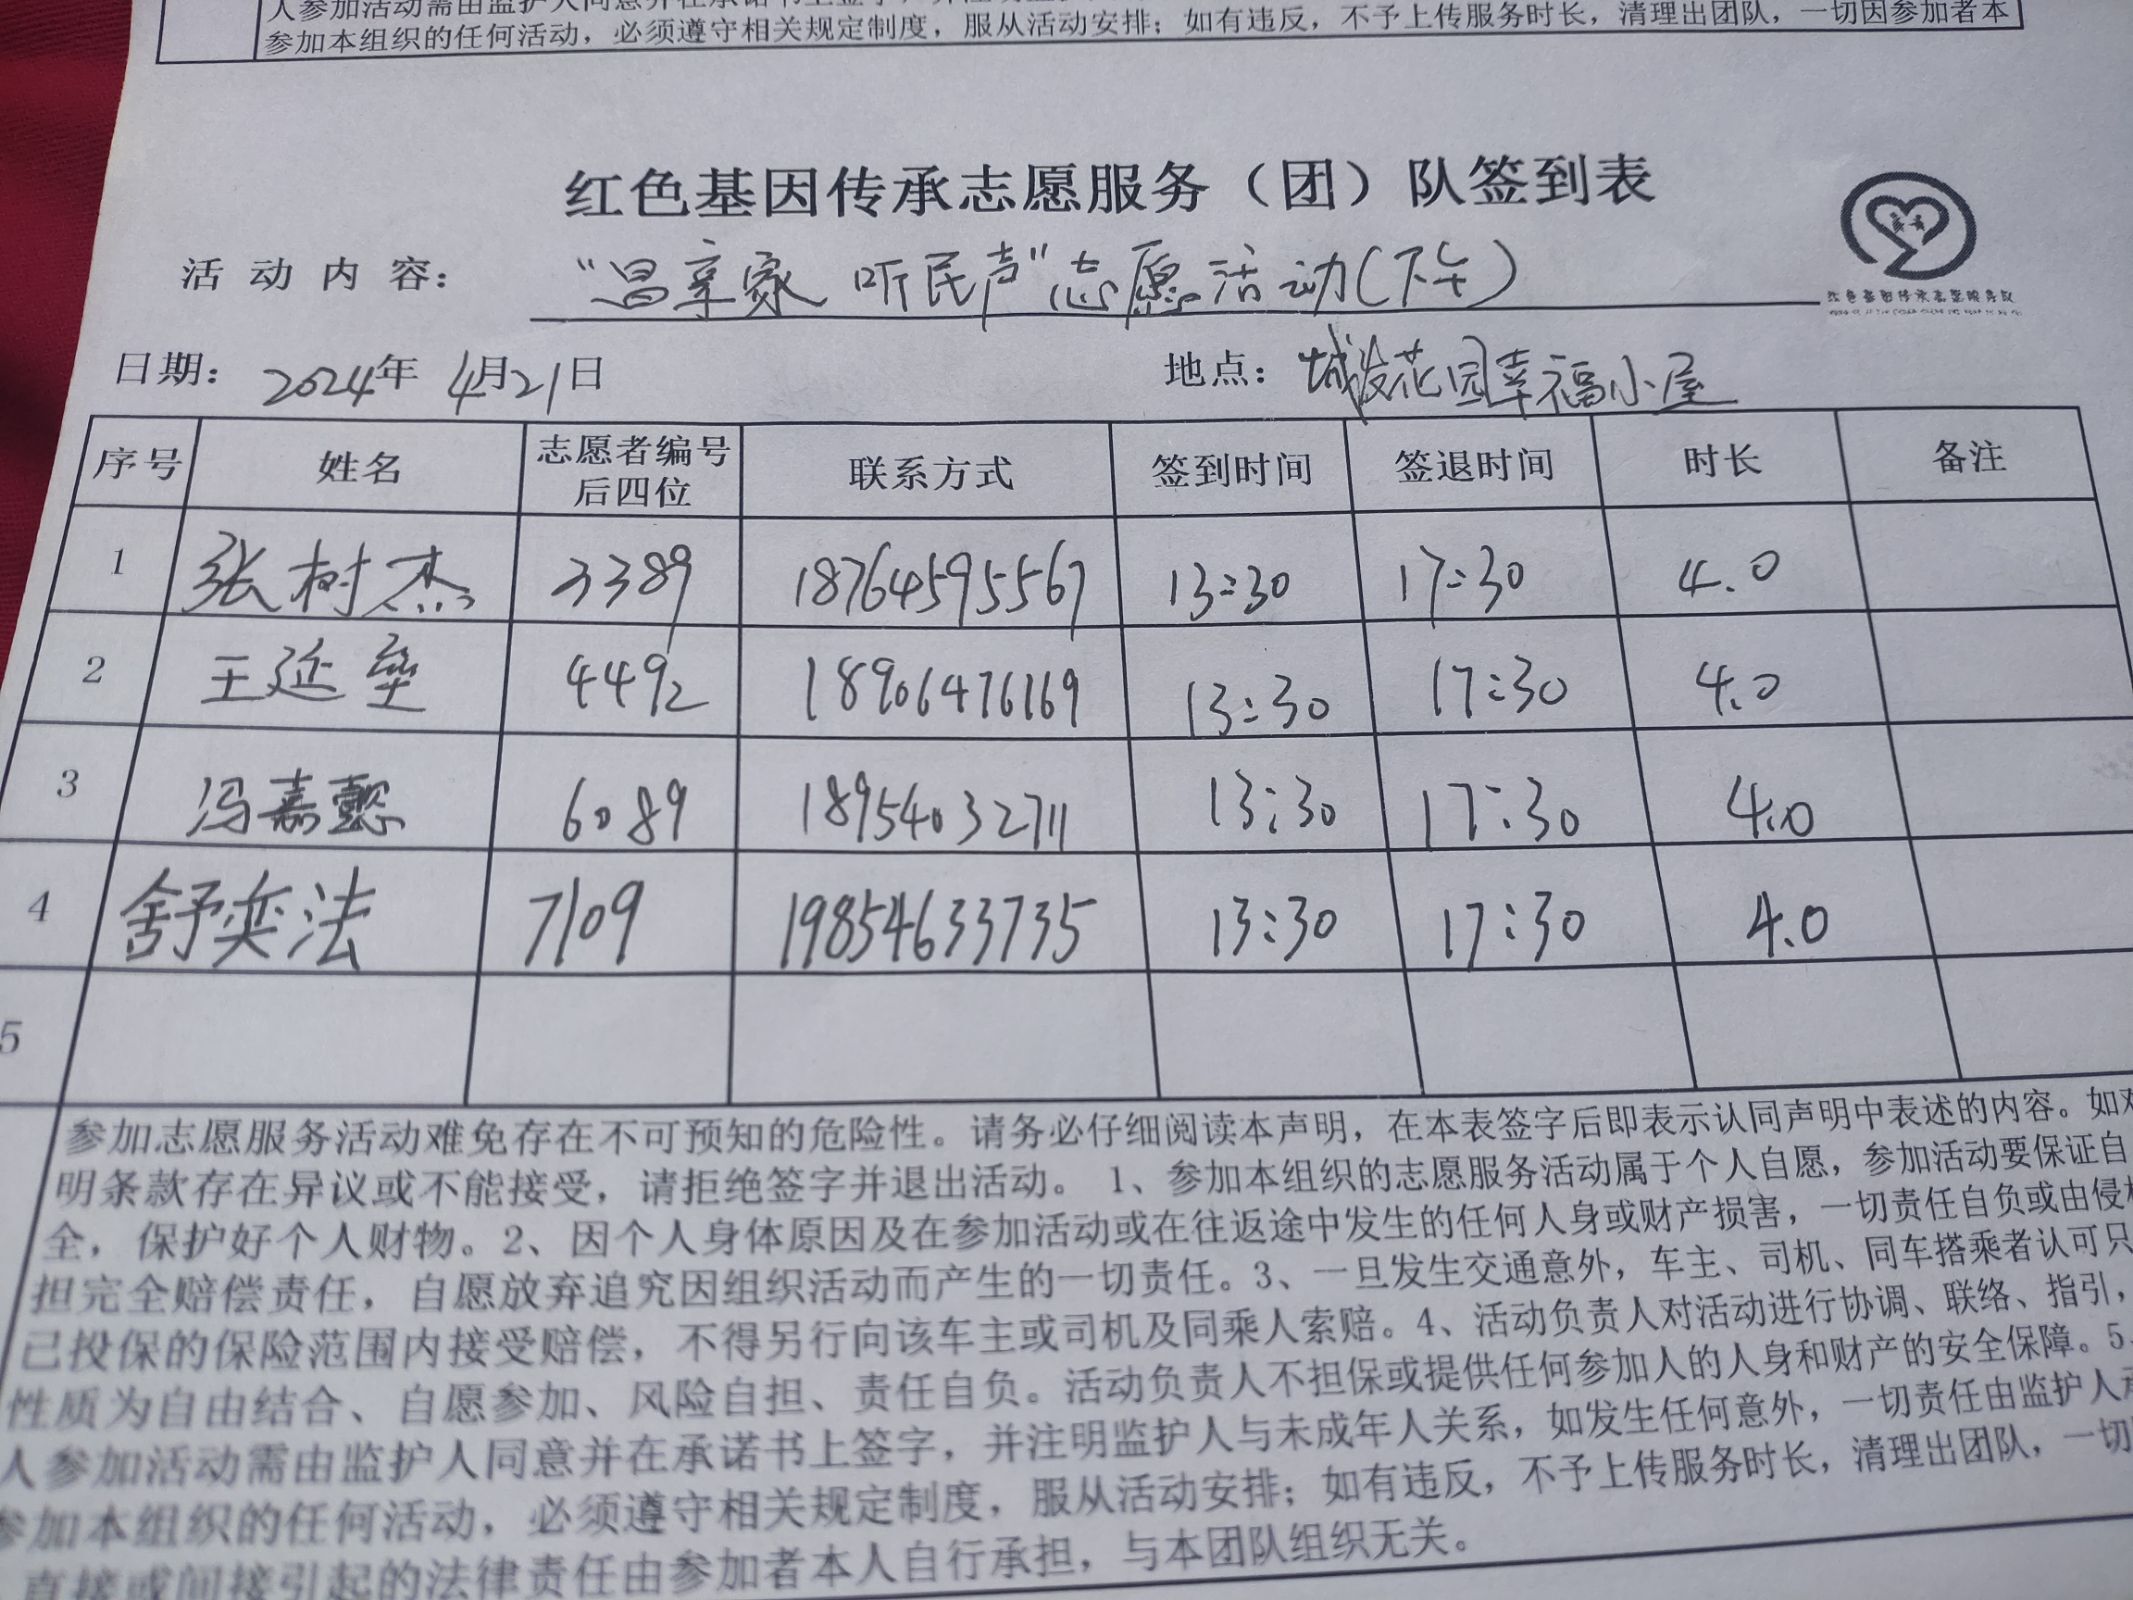 人参加活动需由监护人同意并在承诺书上签字，并注明监护
参加本组织的任何活动，必须遵守相关规定制度，服从活动安排；如有违反，不予上传服务时长，清理出团队，一切因参加者本
红色基因传承志愿服务（团）队签到表
活动内容：“昌享家 听民声”志愿活动(下午)
红色基因传承志愿服务队
日期：2024年 4月21日 地点：城发花园幸福小屋
序号 姓名 志愿者编号后四位 联系方式 签到时间 签退时间 时长 备注
1 张树杰 3389 18764595567 13:30 17:30 4.0
2 王延垒 4492 18906476169 13:30 17:30 4.0
3 冯嘉懿 6089 18954032711 13:30 17:30 4.0
4 舒奕法 7109 19854633735 13:30 17:30 4.0
5
参加志愿服务活动难免存在不可预知的危险性。请务必仔细阅读本声明，在本表签字后即表示认同声明中表述的内容。如对
明条款存在异议或不能接受，请拒绝签字并退出活动。 1、参加本组织的志愿服务活动属于个人自愿，参加活动要保证自
全，保护好个人财物。2、因个人身体原因及在参加活动或在往返途中发生的任何人身或财产损害，一切责任自负或由侵权
担完全赔偿责任，自愿放弃追究因组织活动而产生的一切责任。3、一旦发生交通意外，车主、司机、同车搭乘者认可只
己投保的保险范围内接受赔偿，不得另行向该车主或司机及同乘人索赔。4、活动负责人对活动进行协调、联络、指引，
性质为自由结合、自愿参加、风险自担、责任自负。活动负责人不担保或提供任何参加人的人身和财产的安全保障。5、
人参加活动需由监护人同意并在承诺书上签字，并注明监护人与未成年人关系，如发生任何意外，一切责任由监护人承
参加本组织的任何活动，必须遵守相关规定制度，服从活动安排；如有违反，不予上传服务时长，清理出团队，一切
直接或间接引起的法律责任由参加者本人自行承担，与本团队组织无关。